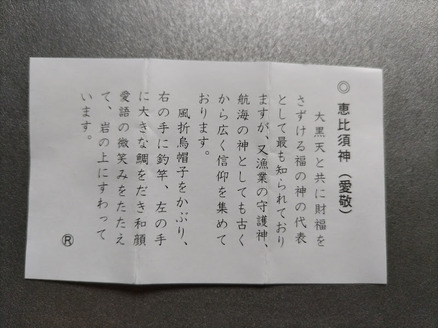 ◎ 恵比須神（愛敬）
大黒天と共に財福を
さずける福の神の代表
として最も知られており
ますが、又漁業の守護神、
航海の神としても古く
から広く信仰を集めて
おります。
風折烏帽子をかぶり、
右の手に釣竿、左の手
に大きな鯛をだき和顔
愛語の微笑みをたたえ
て、岩の上にすわって
います。
Ⓡ